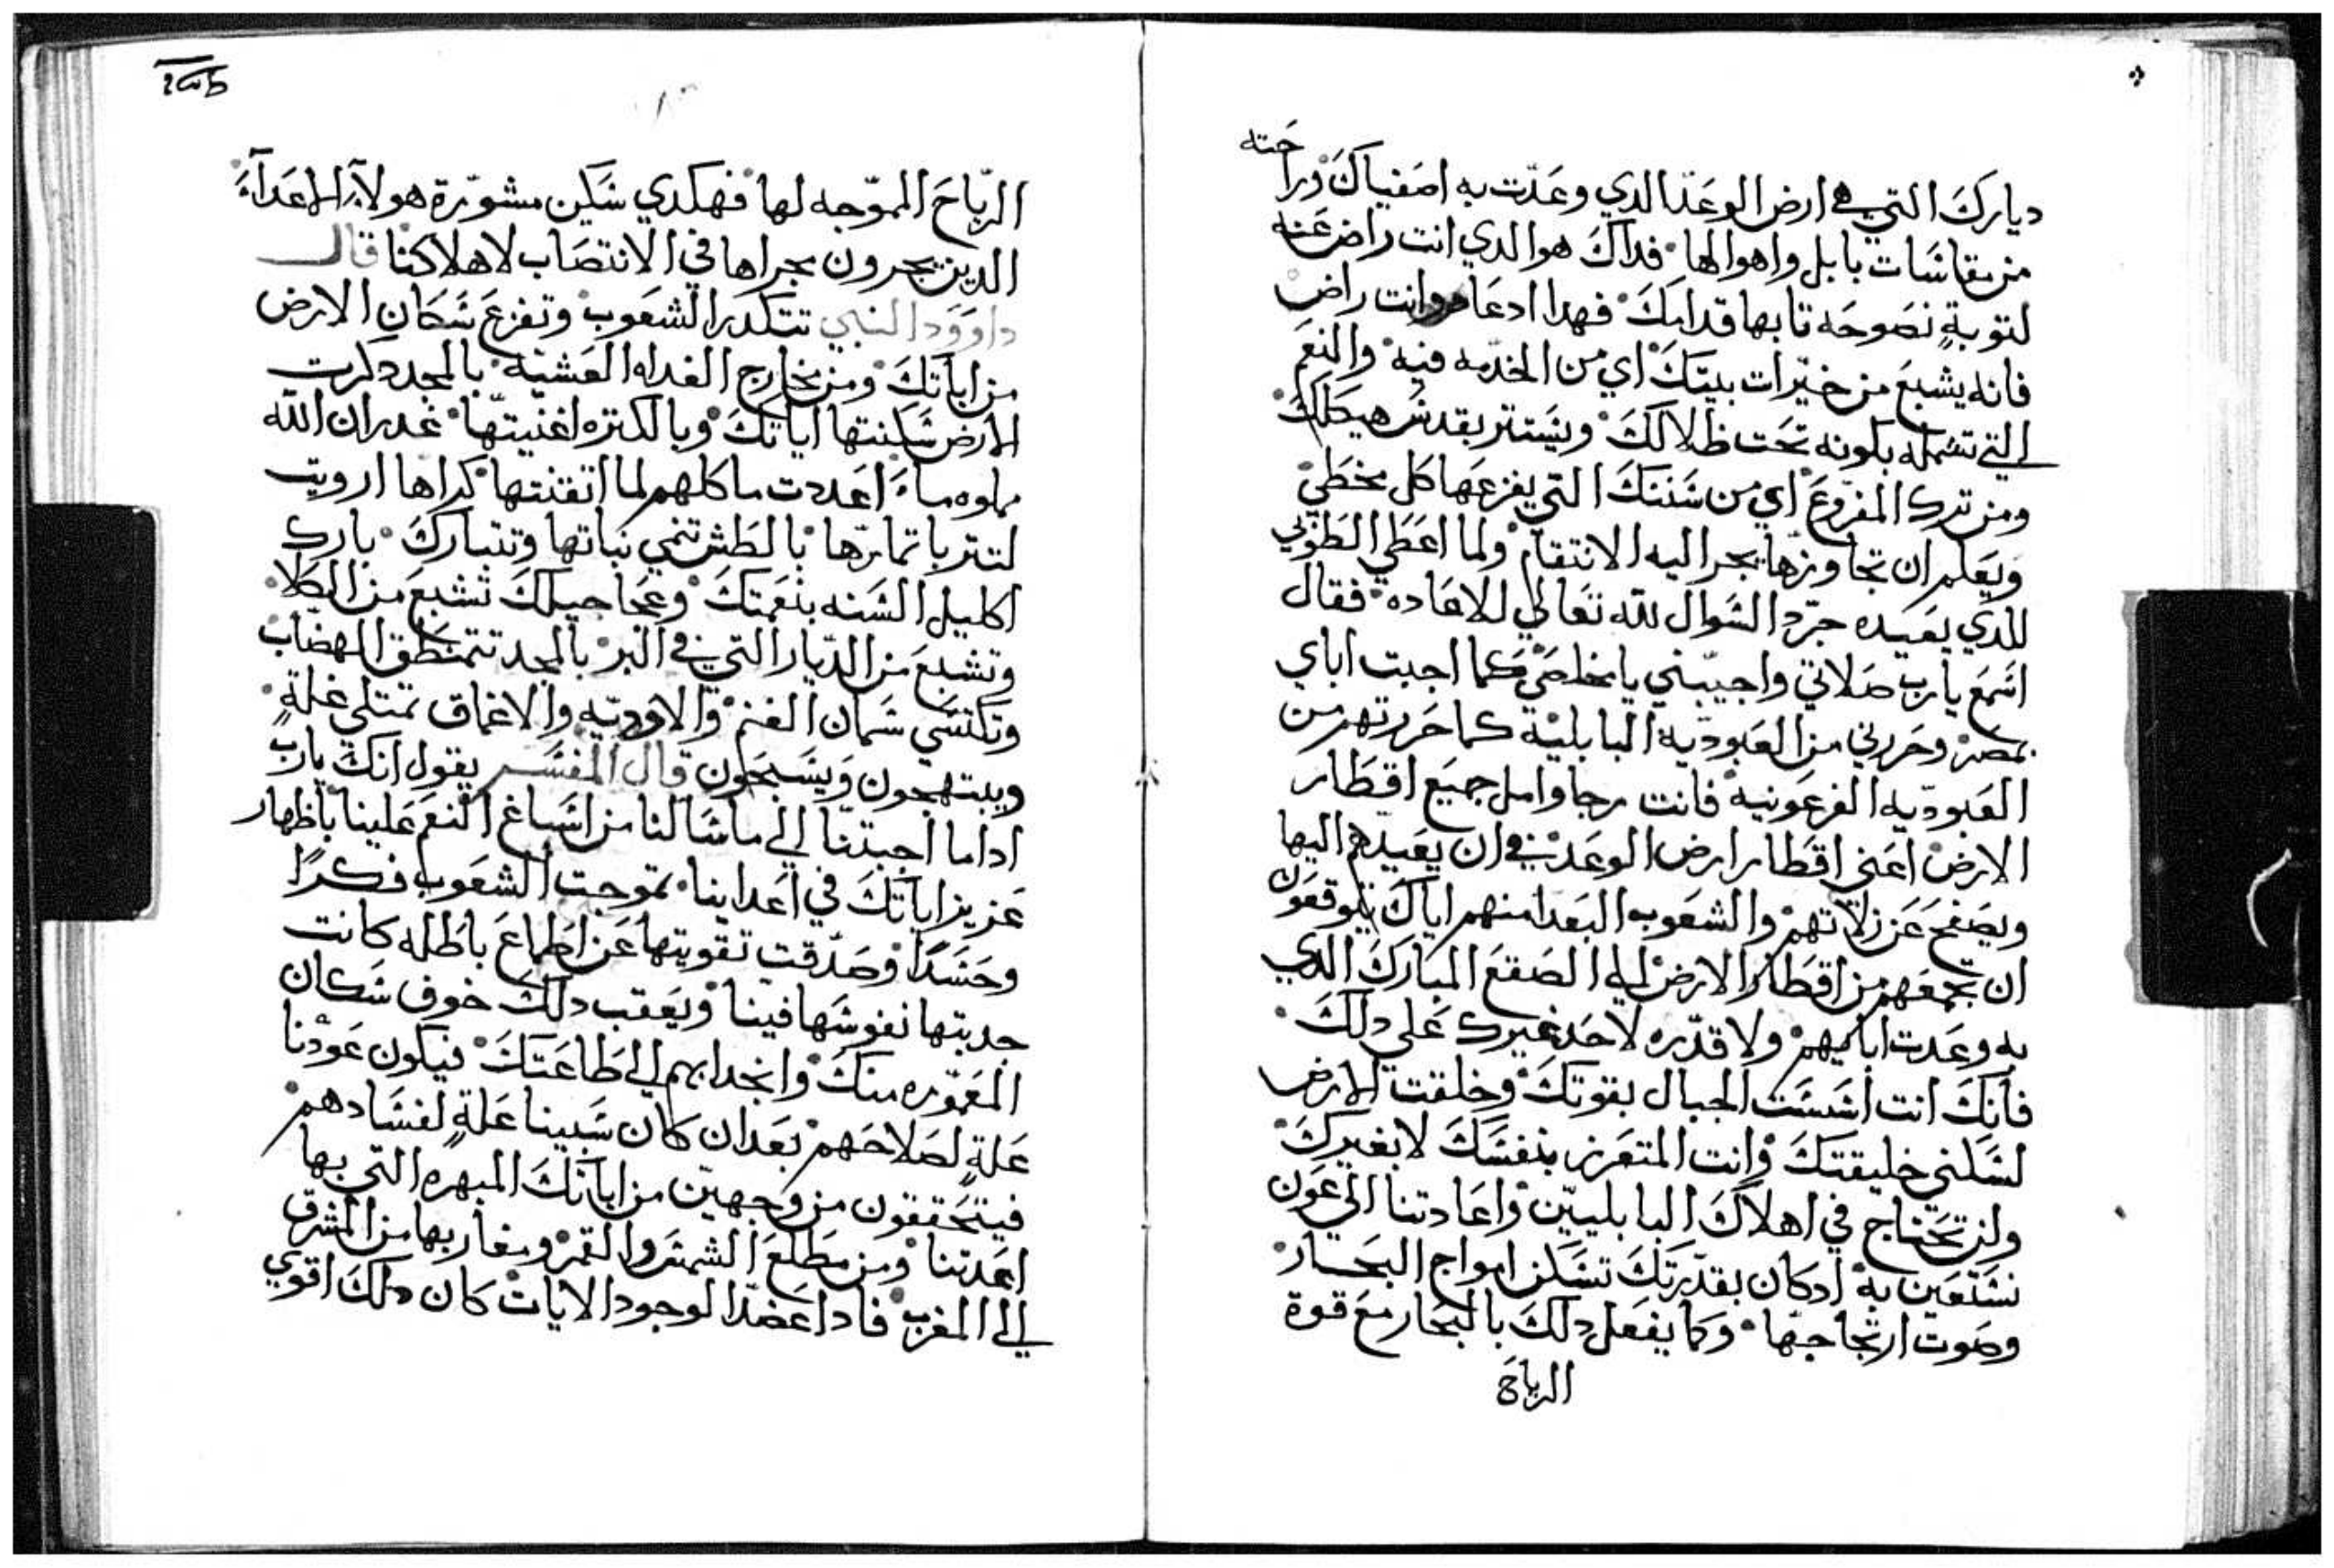 دياركَ التي هي ارض الوعَد الدي وعَدّت به اصَفياكَ وراحَته
من مقاسَات بابل واهوالها ۰ فداكَ هو الدي انت راض عَنه
لتوبةٍ نصَوحَه تابها قدامكَ ۰ فهدا ادعَاهم وانت راض
فانه يشبعَ من خيّرات بيتكَ اي من الخدّمه فيه ۰ والنعَم
التي تشمله بكونه تحَت ظلالكَ ۰ ويسَتتر بقدسَ هيكلكَ ۰
ومن تدرك المفزوعَ اي من سَننكَ التي يفزعَها كل مخطي ۰
ويَعَلم ان تجاوزها يجر اليه الانتقام ولما اعَطي الطَوبي
للدي يعَيده جرّد السَوال لله تعَالي للاعَاده ۰ فقال
اسَمعَ يارب صَلاتي واجيبني يا مخلصَي كما اجبت اباي
بمصَر وحَررني من العَبودّيه البابليّه كما حَررتهم من
العَبودّيه الفرعَونيه فانت مرجا وامل جميعَ اقطَار
الارض اعَني اقطَار ارض الوعَد في ان يعَيدهم اليها
ويصَفحَ عَن زلاتهم والشعَوب البعَدا منهم اياكَ يتوقعَون
ان تجمعَهم من اقطَار الارض الي الصَقعَ المبَاركَ الدي
به وعَدت ابايهم ولا قدّره لاحَد غيرك عَلي دلكَ ۰
فانكَ انت اسَسَت الجبال بقوتكَ وخلقت الارض
لسَكني خليقتكَ وانت المتعَزز بنفسَكَ لا بغيركَ
ولن تحَتاج في اهلاكَ البابليّين واعَادتنا الي عَون
نسَتعَين به ادكان بقدّرتكَ تسَكن امواج البحَار
وصَوت ارتجاجهَا ۰ وكما يفعَل دلكَ بالبحَار معَ قوة
الرياحَ
الريّاحَ المموّجه لها ۰ فهكدي سَكن مشوّرة هولآء الاعَدآءَ
الدين يجرون مجراها في الانتصَاب لاهلاكنا قال
داوَوَد النبي تتكدر الشعَوب وتفزعَ سَكان الارض
من اياتكَ ومن مخارج الغداه العَشيّه ۰ بالمجد دكرت
الارض سَكنتها اياتكَ وبالكتره اغنيتّها ۰ غدران اللّه
مملوه ماءَ ۰ اعَددت ماكلهم لما اتقنتها ۰ كراها ارويت
لتتربا تمارّها ۰ بالطَش تنمي نباتها وتتباركَ ۰ بارك
اكليل السَنه بنعَمتكَ وعَجاجيلكَ تشبعَ من الطَلا ۰
وتشبعَ من الدّيار التي في البر ۰ بالمجد تتمنطَق الهضاب
وتكتسَي سَمان الغنم ۰ والاودّيه والاعَماق تمتلي غلةٍ ۰
ويبتهجون وَيسَبحَون قال المفسَر يقول انكَ يارب
اداما اجبتنّا الي ماسَالنا من اسَباغ النعَم عَلينا باظهار
عَزيز اياتكَ في اعَداينا ۰ تموجت الشعَوب فكرًا
وحَسَدًا وصَدّقت تقويتها عَن اطَماعَ باطَله كانت
جدبتها نفوسَها فينا ۰ ويعَقب دلكَ خوف سَكان
المعَموّره منكَ وانجدابهم الي طَاعَتكَ ۰ فيكون عَوّدنا
عَلةٍ لصَلاحَهم بعَد ان كان سَبينا عَلةٍ لفسَادهم
فيتحَققون من وجهيَن من اياتكَ المبهره التي بها
اعَدتنا ۰ ومن مطَلعَ الشمسَ والقمر ومغاربها من المشرق
الي المغرب ۰ فاداعَضدّا لوجود الايات كان دلكَ اقوي